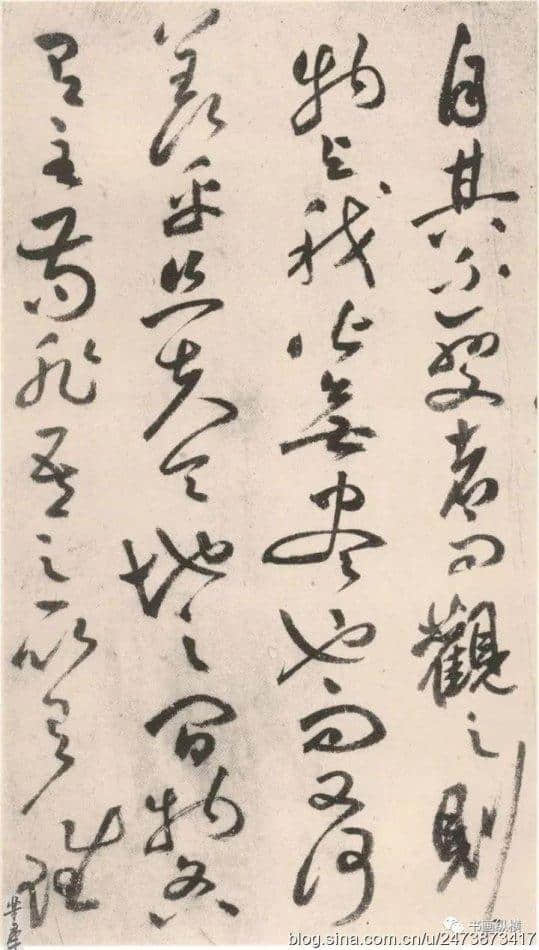 自其不變者而觀之則
物與我皆無盡也而又何
羨乎且夫天地之間物各
有主苟非吾之所有雖
书画纵横
blog.sina.com.cn/u/2473873417